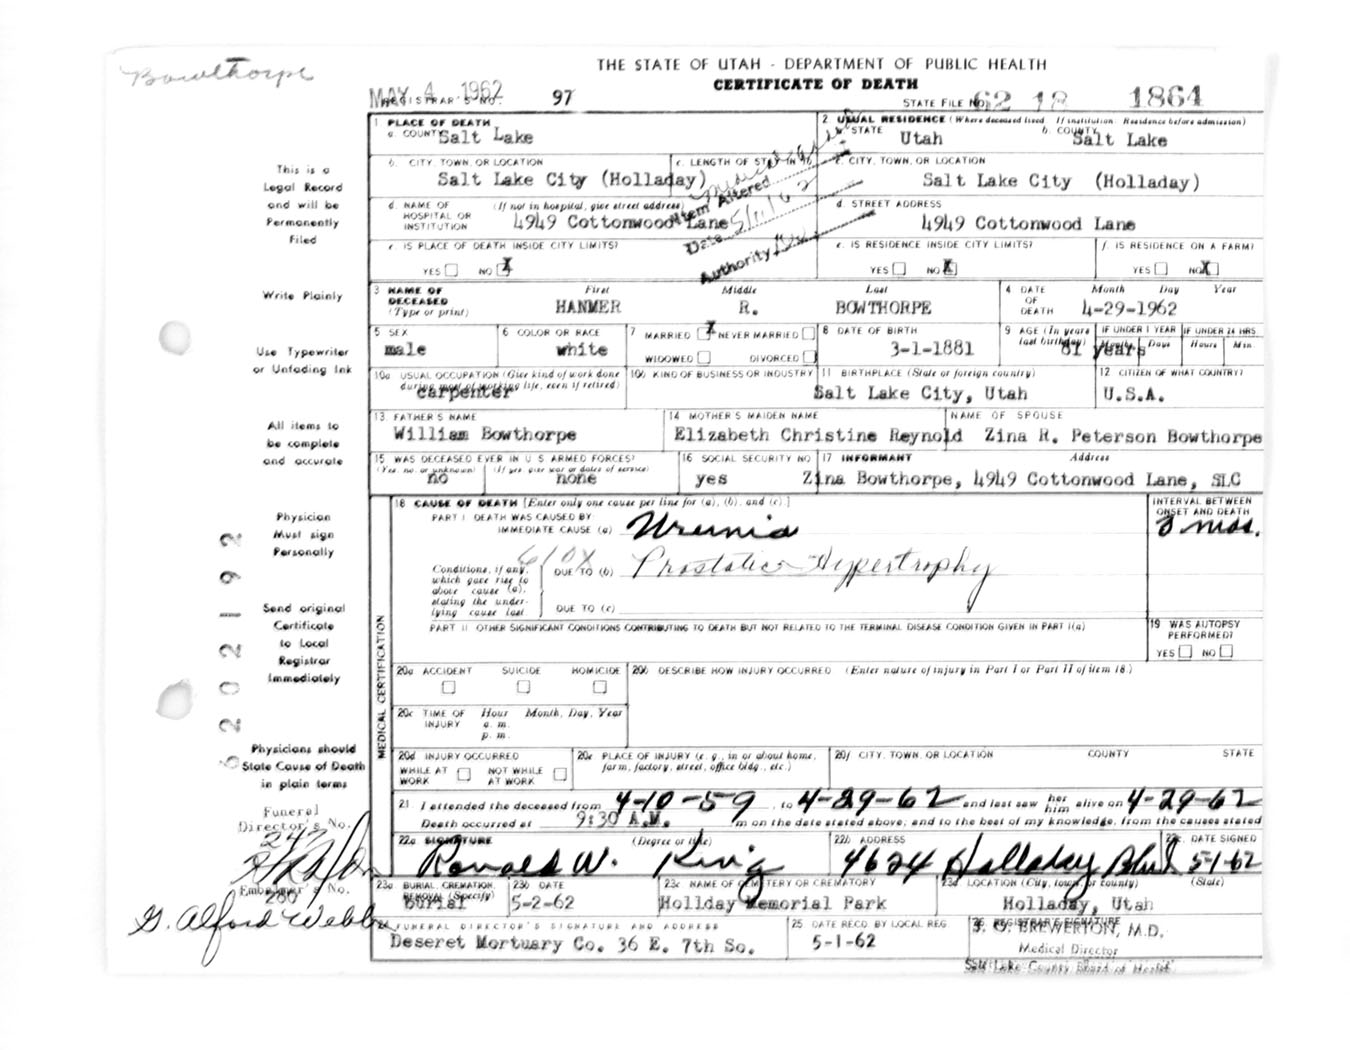 Bowthorpe
THE STATE OF UTAH - DEPARTMENT OF PUBLIC HEALTH
CERTIFICATE OF DEATH
MAY 4 1962
REGISTRAR'S NO. 97
STATE FILE NO. 62 18 1864
1 PLACE OF DEATH
a. COUNTY Salt Lake
2. USUAL RESIDENCE (Where deceased lived. If institution: Residence before admission)
a. STATE Utah b. COUNTY Salt Lake
b. CITY, TOWN, OR LOCATION Salt Lake City (Holladay)
c. LENGTH OF STAY IN 1b
c. CITY, TOWN, OR LOCATION Salt Lake City (Holladay)
d. NAME OF HOSPITAL OR INSTITUTION (If not in hospital, give street address) 4949 Cottonwood Lane
d. STREET ADDRESS 4949 Cottonwood Lane
Item Altered
Date 5/11/62
Authority
e. IS PLACE OF DEATH INSIDE CITY LIMITS?
YES NO X
e. IS RESIDENCE INSIDE CITY LIMITS?
YES NO X
f. IS RESIDENCE ON A FARM?
YES NO X
3 NAME OF DECEASED (Type or print)
First Middle Last
HANMER R. BOWTHORPE
4 DATE OF DEATH Month Day Year
4-29-1962
5 SEX male
6 COLOR OR RACE white
7 MARRIED X NEVER MARRIED
WIDOWED DIVORCED
8 DATE OF BIRTH 3-1-1881
9 AGE (In years last birthday) 81 years
IF UNDER 1 YEAR Months Days
IF UNDER 24 HRS Hours Min
10a USUAL OCCUPATION (Give kind of work done during most of working life, even if retired) carpenter
10b KIND OF BUSINESS OR INDUSTRY
11 BIRTHPLACE (State or foreign country) Salt Lake City, Utah
12 CITIZEN OF WHAT COUNTRY? U.S.A.
13. FATHER'S NAME William Bowthorpe
14 MOTHER'S MAIDEN NAME Elizabeth Christine Reynold
NAME OF SPOUSE Zina R. Peterson Bowthorpe
15 WAS DECEASED EVER IN U S ARMED FORCES?
(Yes, no, or unknown) no (If yes, give war or dates of service) none
16 SOCIAL SECURITY NO yes
17 INFORMANT Address
Zina Bowthorpe, 4949 Cottonwood Lane, SLC
18 CAUSE OF DEATH [Enter only one cause per line for (a), (b), and (c).]
INTERVAL BETWEEN ONSET AND DEATH
PART I DEATH WAS CAUSED BY
IMMEDIATE CAUSE (a) Uremia 3 mos.
610X
Conditions, if any, which gave rise to above cause (a), stating the underlying cause last.
DUE TO (b) Prostatic Hypertrophy
DUE TO (c)
PART II OTHER SIGNIFICANT CONDITIONS CONTRIBUTING TO DEATH BUT NOT RELATED TO THE TERMINAL DISEASE CONDITION GIVEN IN PART I(a)
19 WAS AUTOPSY PERFORMED?
YES NO
MEDICAL CERTIFICATION
20a ACCIDENT SUICIDE HOMICIDE
20b DESCRIBE HOW INJURY OCCURRED (Enter nature of injury in Part I or Part II of item 18.)
20c TIME OF INJURY Hour Month, Day, Year
a. m.
p. m.
20d INJURY OCCURRED
WHILE AT WORK NOT WHILE AT WORK
20e PLACE OF INJURY (e. g., in or about home, farm, factory, street, office bldg., etc.)
20f CITY, TOWN, OR LOCATION COUNTY STATE
21. I attended the deceased from 4-10-59, to 4-29-62 and last saw her him alive on 4-29-62
Death occurred at 9:30 A.M. m on the date stated above; and to the best of my knowledge, from the causes stated
22a SIGNATURE (Degree or title) Ronald W. King
22b ADDRESS 4624 Holladay Blvd
22c. DATE SIGNED 5-1-62
23a BURIAL, CREMATION, REMOVAL (Specify) Burial
23b DATE 5-2-62
23c NAME OF CEMETERY OR CREMATORY Hollday Memorial Park
23d LOCATION (City, town, or county) (State) Holladay, Utah
FUNERAL DIRECTOR'S SIGNATURE AND ADDRESS
Deseret Mortuary Co. 36 E. 7th So.
25 DATE RECD BY LOCAL REG 5-1-62
26 REGISTRAR'S SIGNATURE
J. G. BREWERTON, M.D.
Medical Director
Salt Lake County Board of Health
This is a
Legal Record
and will be
Permanently
Filed
Write Plainly
Use Typewriter
or Unfading Ink
All items to
be complete
and accurate
Physician
Must sign
Personally
Send original
Certificate
to Local
Registrar
Immediately
Physicians should
State Cause of Death
in plain terms
Funeral
Director's No.
247
Embalmer's No.
280
G. Alford Webb
62 02192